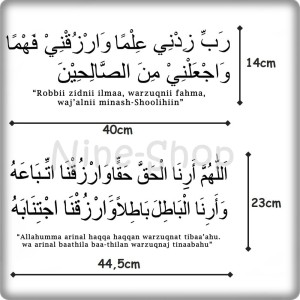 رَبِّ زِدْنِي عِلْمًا وَارْزُقْنِي فَهْمًا
وَاجْعَلْنِي مِنَ الصَّالِحِيْنَ
14cm
"Robbii zidnii ilmaa, warzuqnii fahma,
waj'alnii minash-Shoolihiin"
40cm
Nine-Shop
اَللّٰهُمَّ أَرِنَا الْحَقَّ حَقًّا وَارْزُقْنَا اتِّبَاعَهُ
وَأَرِنَا الْبَاطِلَ بَاطِلًا وَارْزُقْنَا اجْتِنَابَهُ
23cm
"Allahumma arinal haqqa haqqan warzuqnat tibaa'ahu.
wa arinal baathila baa-thilan warzuqnaj tinaabahu"
44,5cm